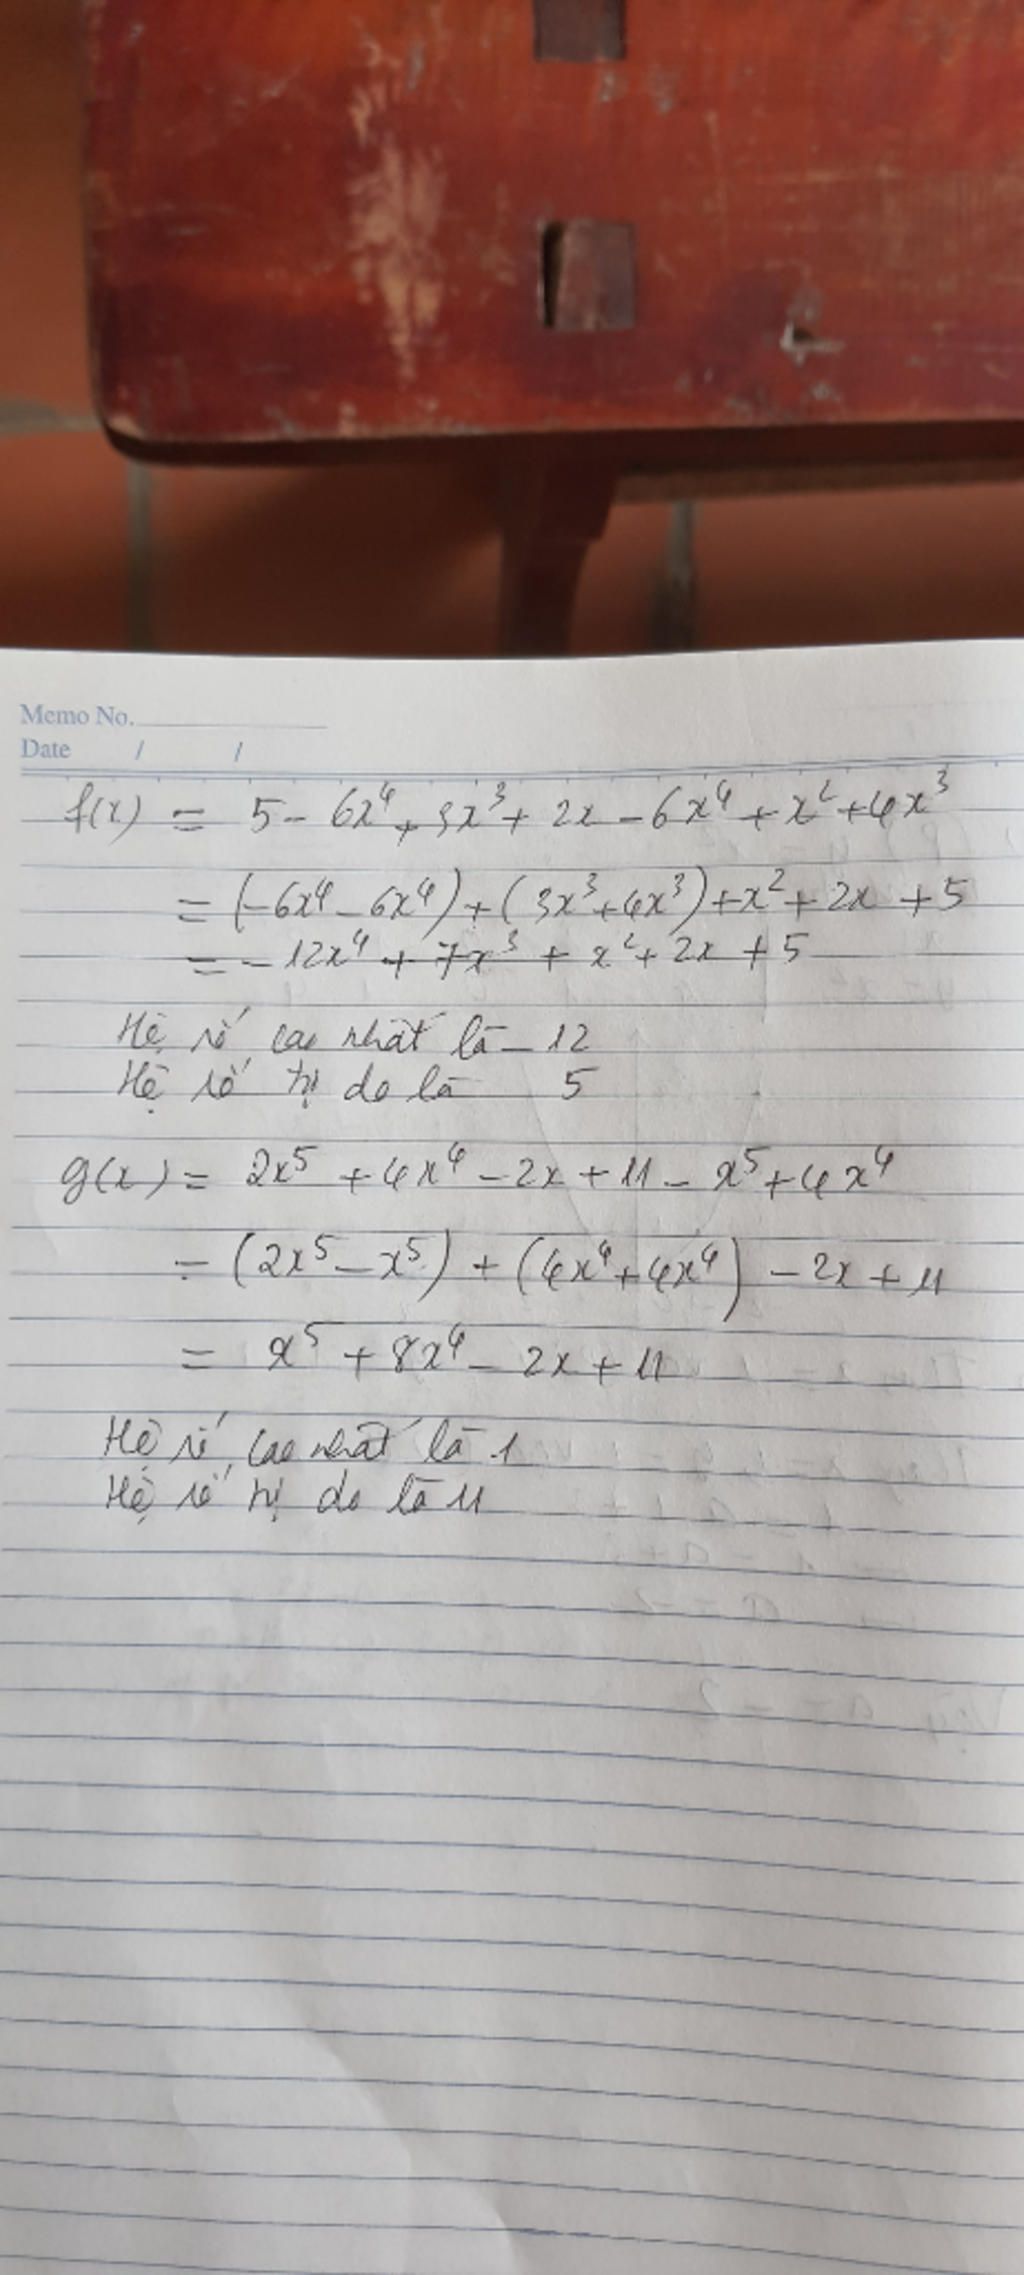 Memo No.
Date / /
f(x) = 5 - 6x⁴ + 3x³ + 2x - 6x⁴ + x² + 4x³
= (-6x⁴ - 6x⁴) + (3x³ + 4x³) + x² + 2x + 5
= -12x⁴ + 7x³ + x² + 2x + 5
Hệ số cao nhất là -12
Hệ số tự do là 5
g(x) = 2x⁵ + 4x⁴ - 2x + 11 - x⁵ + 4x⁴
= (2x⁵ - x⁵) + (4x⁴ + 4x⁴) - 2x + 11
= x⁵ + 8x⁴ - 2x + 11
Hệ số cao nhất là 1
Hệ số tự do là 11